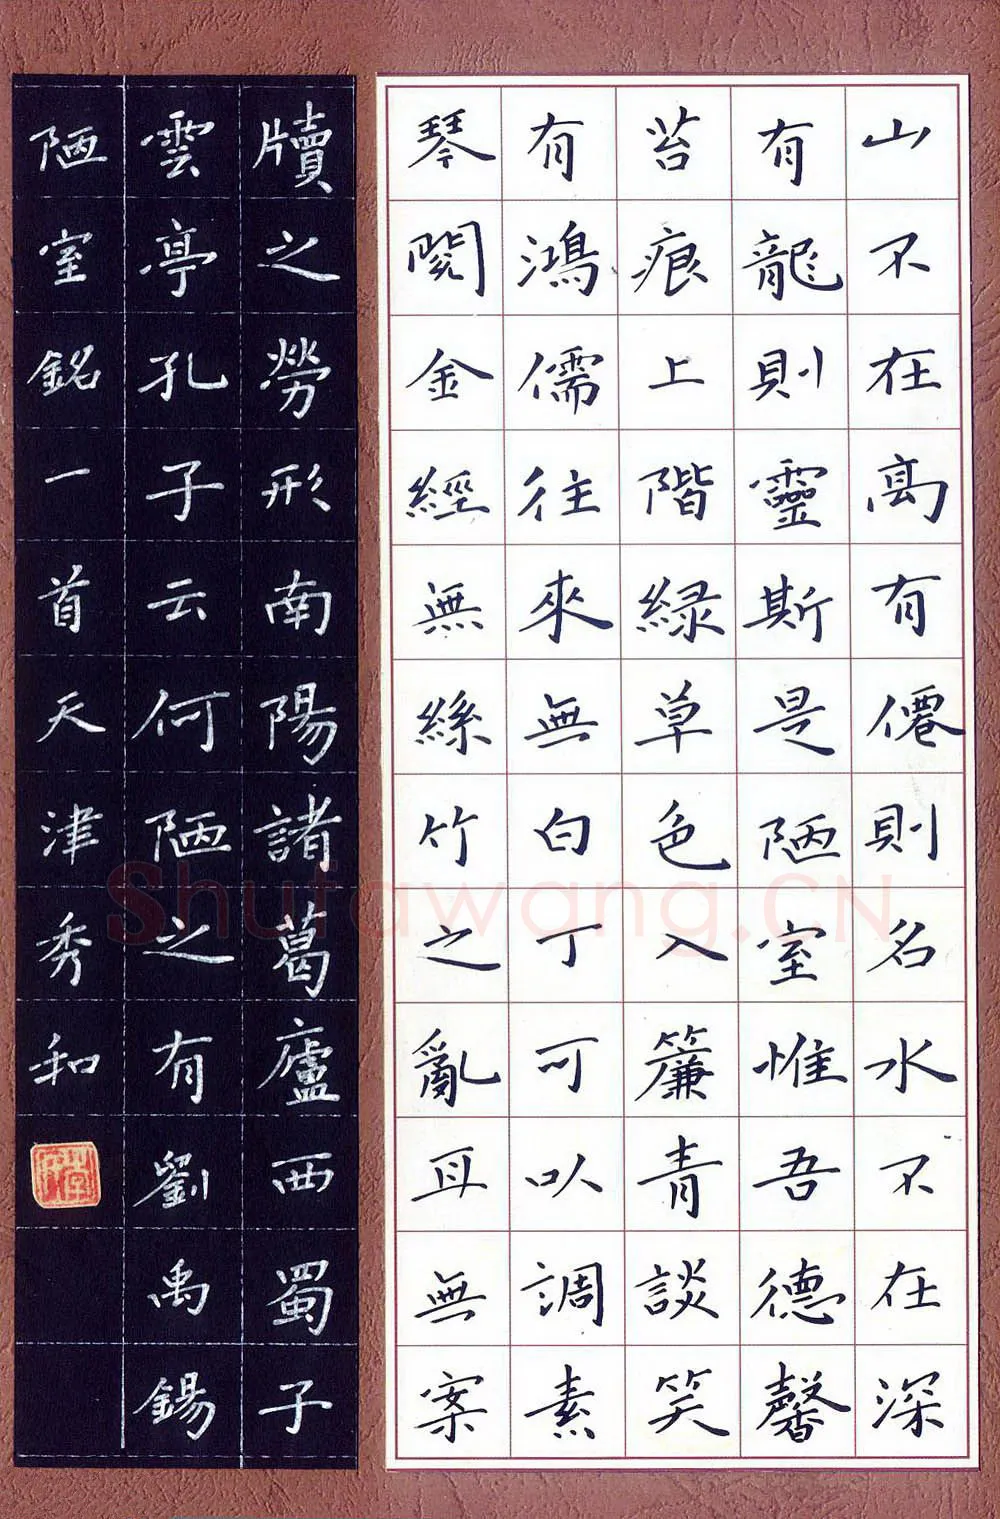 山不在高有僊則名水不在深
有龍則靈斯是陋室惟吾德馨
苔痕上階緑草色入簾青談笑
有鴻儒往來無白丁可以調素
琴閱金經無絲竹之亂耳無案
牘之勞形南陽諸葛廬西蜀子
雲亭孔子云何陋之有劉禹錫
陋室銘一首天津秀和
Shufawang.CN